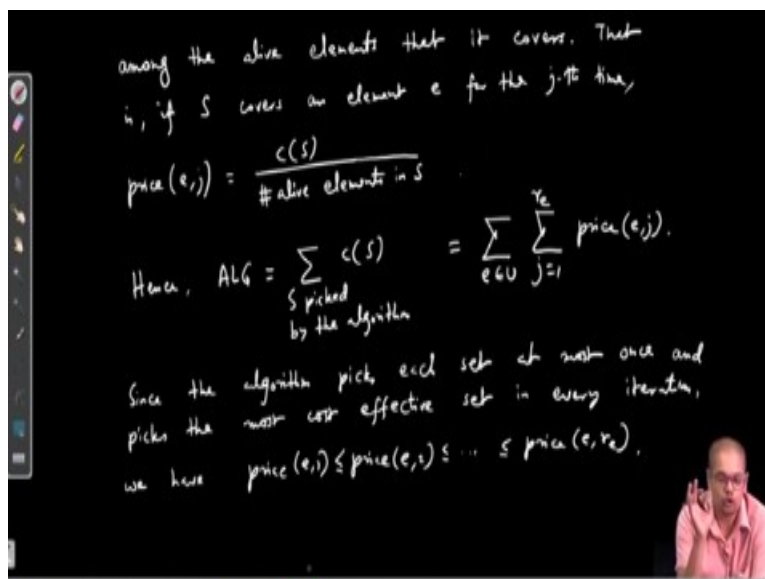 among the alive elements that it covers. That
is, if S covers an element e for the j-th time,
price(e,j) = c(S) / # alive elements in S .
Hence, ALG = ∑_{S picked by the algorithm} c(S) = ∑_{e∈U} ∑_{j=1}^{r_e} price(e,j).
Since the algorithm picks each set at most once and
picks the most cost effective set in every iteration,
we have price(e,1) ≤ price(e,2) ≤ ... ≤ price(e,r_e).